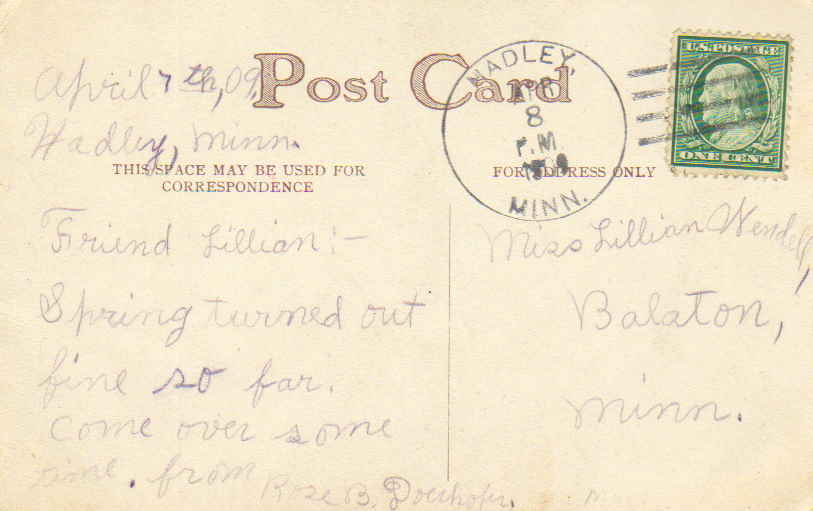 Post Card
April 7th, 09.
Hadley, Minn.
THIS SPACE MAY BE USED FOR
CORRESPONDENCE
Friend Lillian:-
Spring turned out
fine so far.
Come over some
time. from
Rose B.
HADLEY,
APR
8
P.M.
MINN.
U.S. POSTAGE
ONE CENT
FOR ADDRESS ONLY
Miss Lillian Wendell,
Balaton,
Minn.